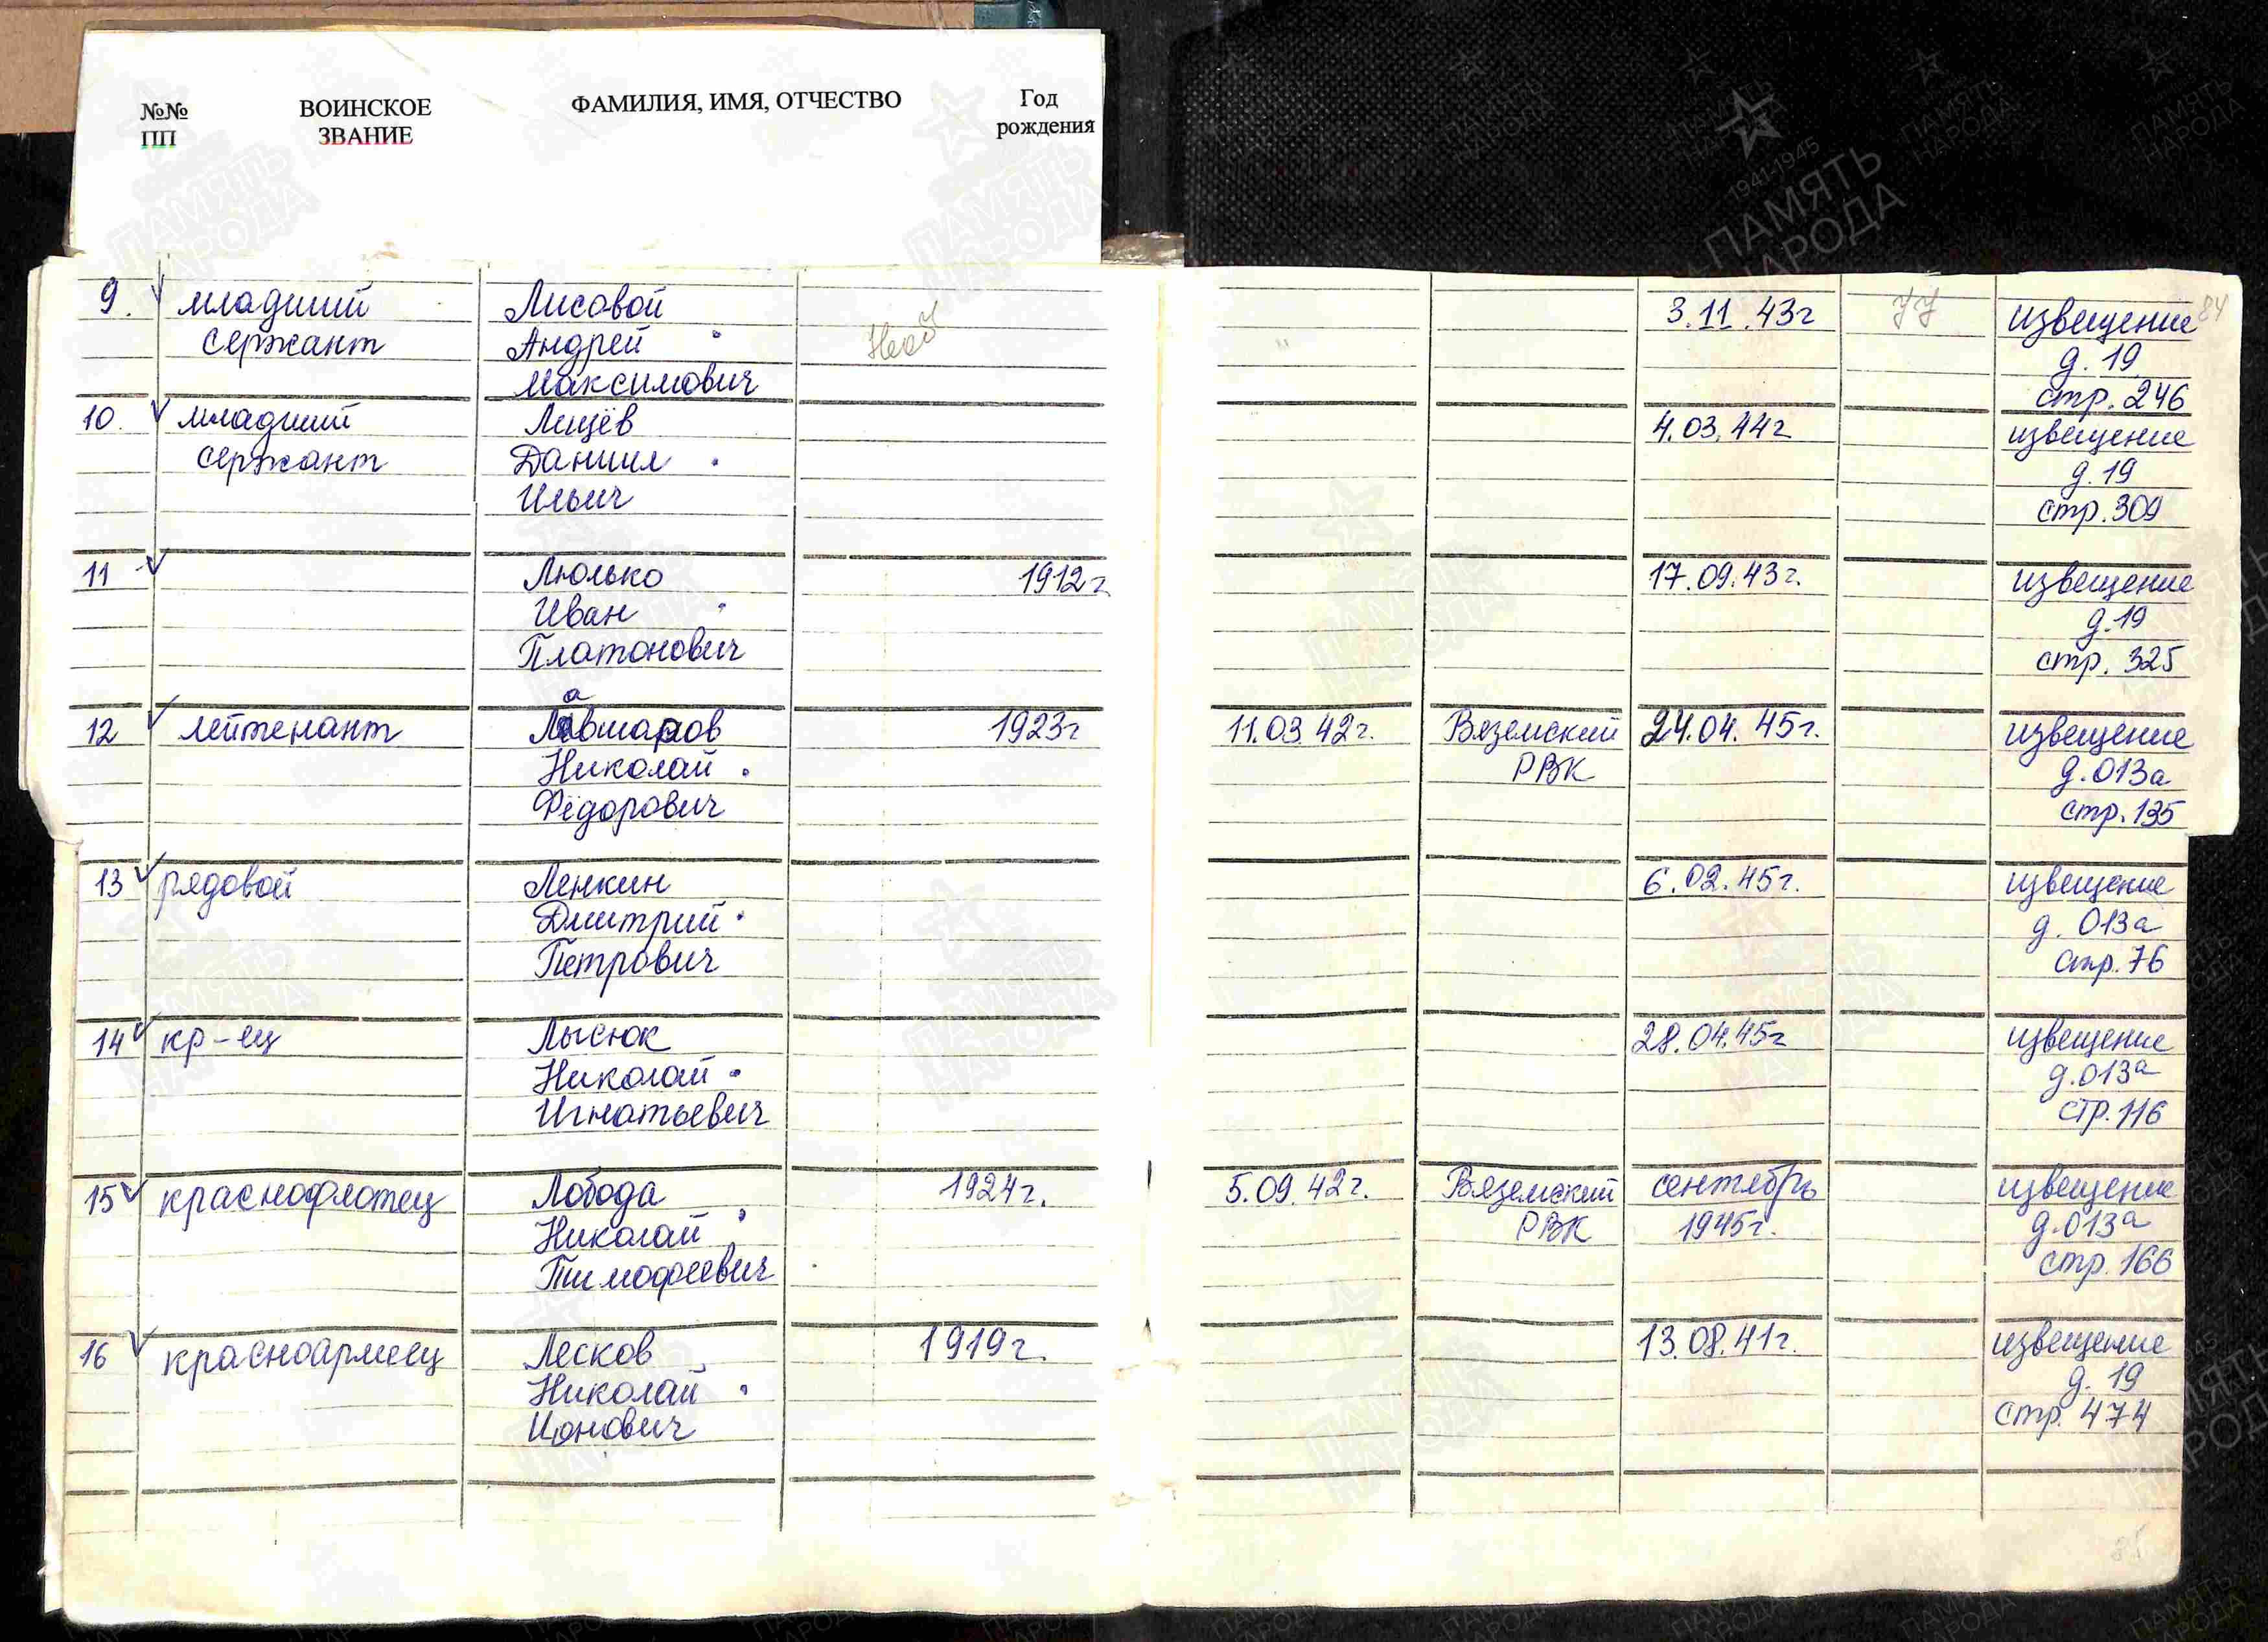 №№ ВОИНСКОЕ ФАМИЛИЯ, ИМЯ, ОТЧЕСТВО Год
ПП ЗВАНИЕ рождения
9. младший Лисовой 3.11.43г извещение 84
сержант Андрей д.19
Максимович стр.246
10. младший Лищёв 4.03.44г извещение
сержант Даниил д.19
Ильич стр.309
11 Люлько 1912г 17.09.43г. извещение
Иван д.19
Платонович стр. 325
12 лейтенант 1923г 11.03.42г. Вяземский 24.04.45г. извещение
Николай РВК д.013а
Фёдорович стр.135
13 рядовой Ленкин 6.02.45г. извещение
Дмитрий д. 013а
Петрович стр.76
14 кр-ец Лысюк 28.04.45г извещение
Николай д.013а
Игнатьевич стр.116
15 краснофлотец Лобода 1924г. 5.09.42г. Вяземский сентябрь извещение
Николай РВК 1945г. д.013а
Тимофеевич стр.166
16 красноармеец Лесков 1919г. 13.08.41г. извещение
Николай д. 19
Ионович стр. 474
1941-1945
ПАМЯТЬ
НАРОДА